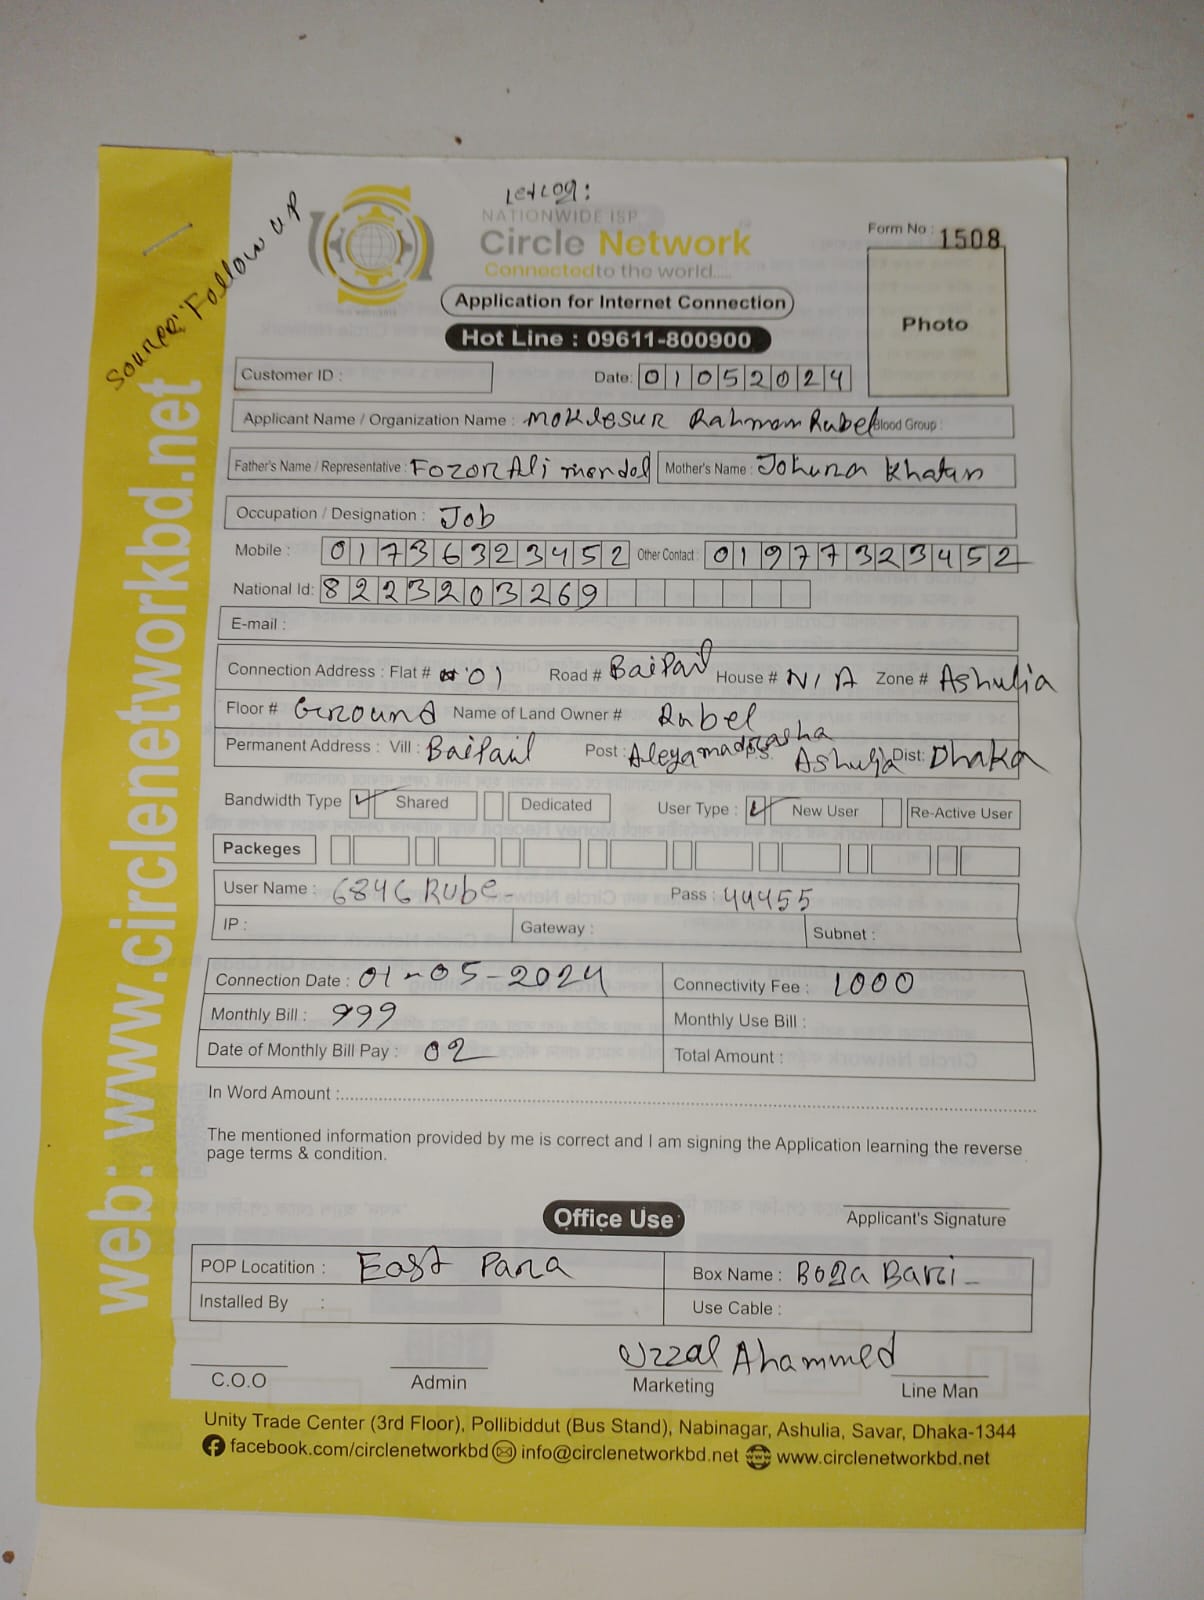 Source: Follow UP
NATIONWIDE ISP
Circle Network
Connected to the world.....
Application for Internet Connection
Hot Line : 09611-800900
Form No : 1508
Photo
Customer ID :
Date: 01052024
Applicant Name / Organization Name : Moklesur Rahman Rubel Blood Group :
Father's Name / Representative : Fozor Ali mondol Mother's Name : Johura Khatun
Occupation / Designation : Job
Mobile : 01736323452 Other Contact : 01977323452
National Id: 8223203269
E-mail :
Connection Address : Flat # 01 Road # Baipail House # N/A Zone # Ashulia
Floor # Ground Name of Land Owner # Rubel
Permanent Address : Vill : Baipail Post : Aleyamadrasha P.S. Ashulia Dist: Dhaka
Bandwidth Type Shared Dedicated User Type : New User Re-Active User
Packeges
User Name : 6846 Rube Pass : 44455
IP : Gateway : Subnet :
Connection Date : 01-05-2024 Connectivity Fee : 1000
Monthly Bill : 999 Monthly Use Bill :
Date of Monthly Bill Pay : 02 Total Amount :
In Word Amount :
The mentioned information provided by me is correct and I am signing the Application learning the reverse
page terms & condition.
Office Use
Applicant's Signature
POP Locatition : East Para Box Name : Boga Bari
Installed By : Use Cable :
Uzzal Ahammed
C.O.O Admin Marketing Line Man
Unity Trade Center (3rd Floor), Pollibiddut (Bus Stand), Nabinagar, Ashulia, Savar, Dhaka-1344
facebook.com/circlenetworkbd info@circlenetworkbd.net www.circlenetworkbd.net
web: www.circlenetworkbd.net